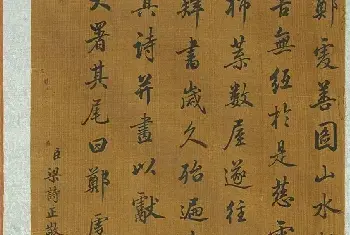 鄭虔善圖山水
苦無紙於是慈
柿葉數屋遂往
肄書歲久殆遍
其詩并畫以獻
大署其尾曰鄭虔
臣梁詩正敬